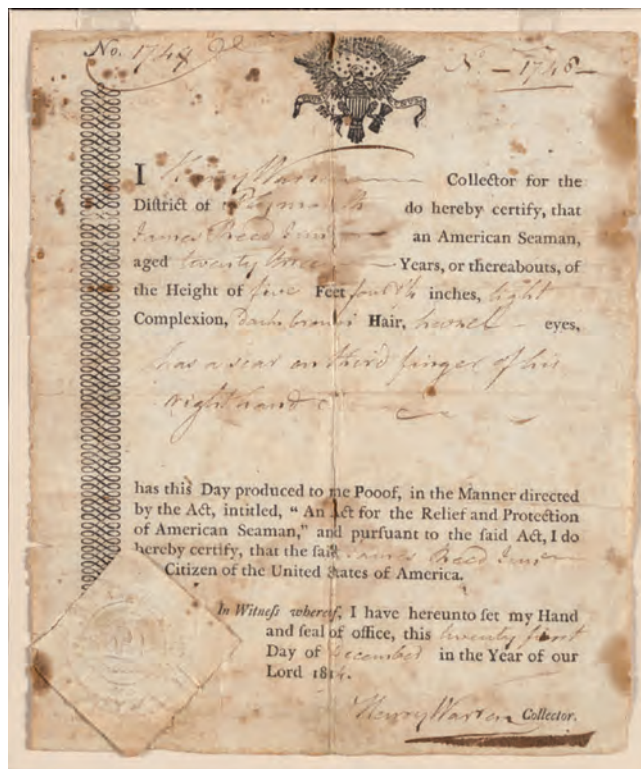 No. 1747
No. — 1748 —
I Henry Warren Collector for the
Diſtrict of Plymouth do hereby certify, that
James Reed Junr an American Seaman,
aged twenty three Years, or thereabouts, of
the Height of five Feet four ¾ inches, light
Complexion, Dark brown Hair, hazel eyes,
has a scar on third finger of his
right hand
has this Day produced to me Pooof, in the Manner directed
by the Act, intitled, “ An Act for the Relief and Protection
of American Seaman,” and pursuant to the said Act, I do
hereby certify, that the said James Reed Junr
Citizen of the United States of America.
In Witneſs whereof, I have hereunto ſet my Hand
and ſeal of office, this twenty first
Day of December in the Year of our
Lord 1814.
Henry Warren Collector.